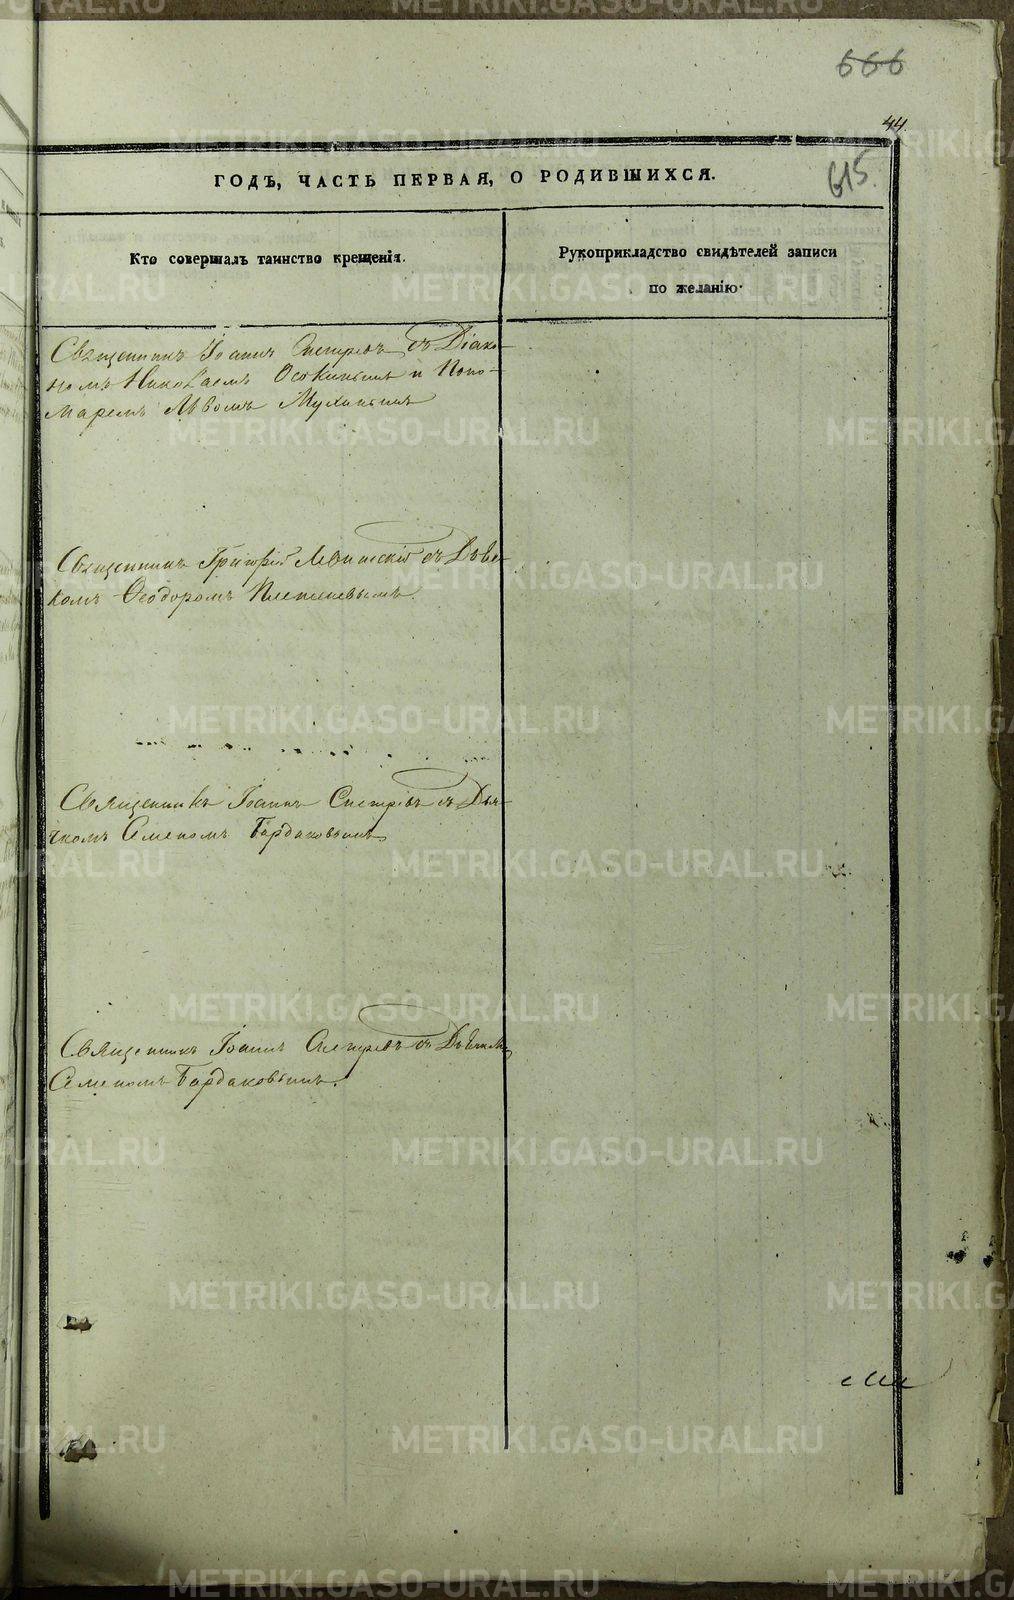 666
44.
615.
ГОДЪ, ЧАСТЬ ПЕРВАЯ, О РОДИВШИХСЯ.
Кто совершалъ таинство крещенія.
Рукоприкладство свидѣтелей записи
по желанію.
Священникъ Іоаннъ съ Діако-
номъ Николаемъ Осокинымъ и Поно-
маремъ Львомъ Мухинымъ
Священникъ Григорій Левитскій съ Дьяч-
комъ Ѳеодоромъ Плетеневымъ.
Священникъ Іоаннъ съ Дья-
чкомъ Семеномъ Бардаковымъ
Священникъ Іоаннъ съ Дьячкомъ
Семеномъ Бардаковымъ.
METRIKI.GASO-URAL.RU